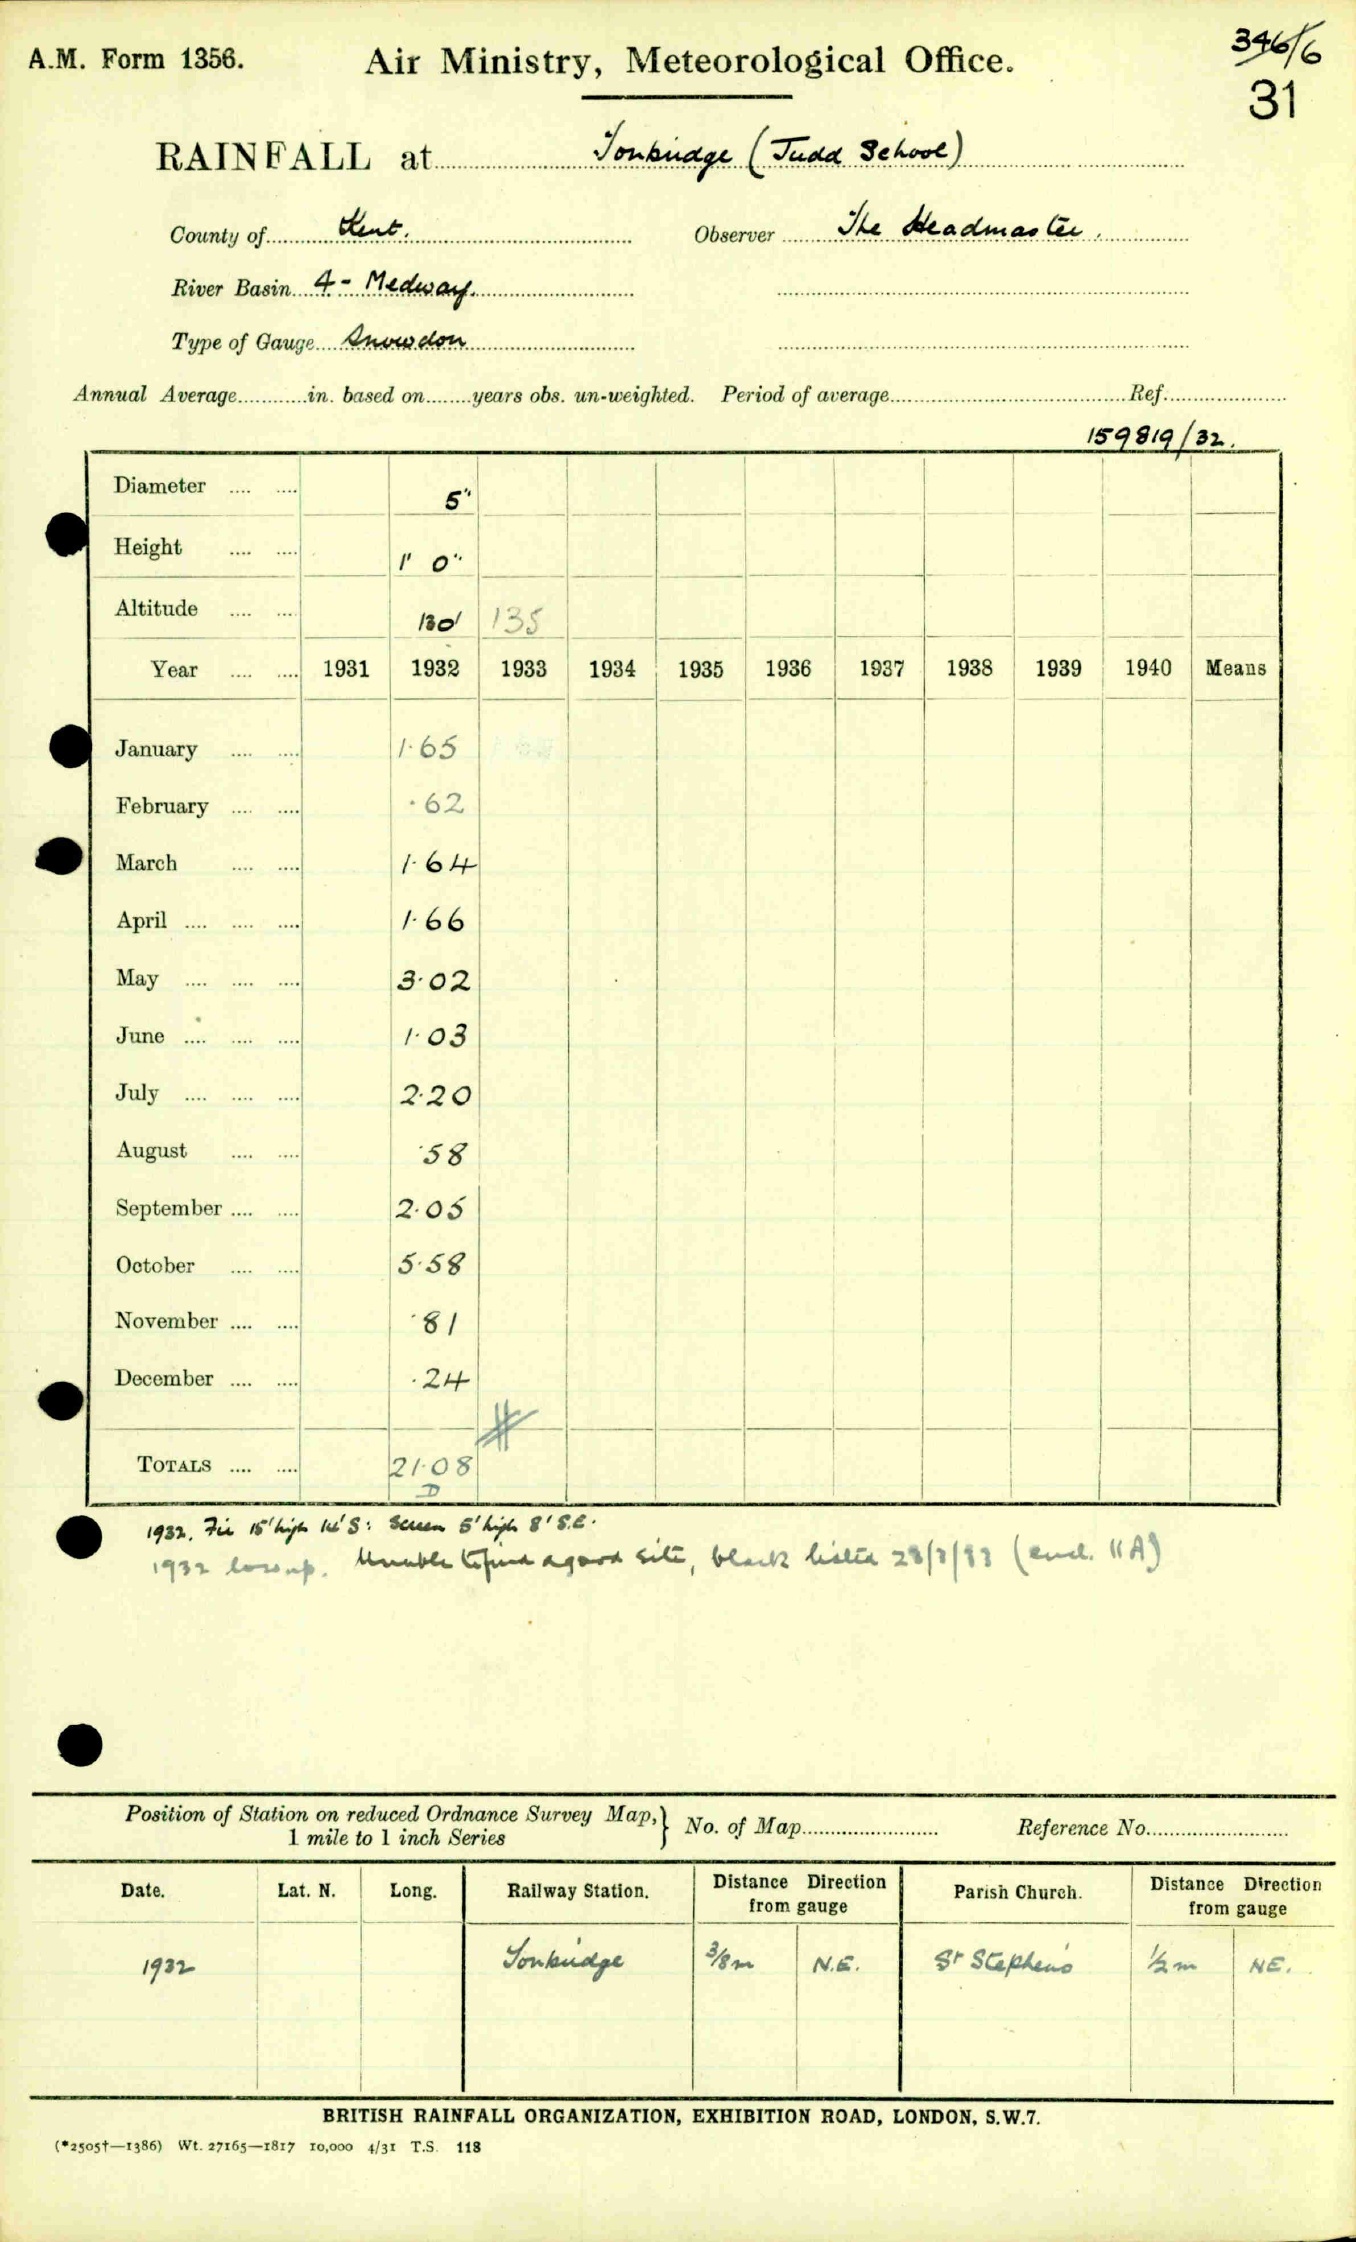 A.M. Form 1356.
Air Ministry, Meteorological Office.
346/6
31
RAINFALL at Tonbridge (Judd School)
County of Kent. Observer The Headmaster.
River Basin 4 - Medway.
Type of Gauge Snowdon
Annual Average in. based on years obs. un-weighted. Period of average Ref.
159819/32.
Diameter 5"
Height 1' 0"
Altitude 130' 135
Year 1931 1932 1933 1934 1935 1936 1937 1938 1939 1940 Means
January 1.65
February .62
March 1.64
April 1.66
May 3.02
June 1.03
July 2.20
August .58
September 2.05
October 5.58
November .81
December .24
TOTALS 21.08
D
1932. Fir 15' high 14' S: Screen 5' high 8' S.E.
1932 Unable to find a good site, black listed (encl. 11A)
Position of Station on reduced Ordnance Survey Map, } No. of Map Reference No.
1 mile to 1 inch Series
Date. Lat. N. Long. Railway Station. Distance Direction from gauge Parish Church. Distance Direction from gauge
1932 Tonbridge 3/8 m N.E. St Stephen's 1/2 m NE.
BRITISH RAINFALL ORGANIZATION, EXHIBITION ROAD, LONDON, S.W.7.
(*2505†—1386) Wt. 27165—1817 10,000 4/31 T.S. 118